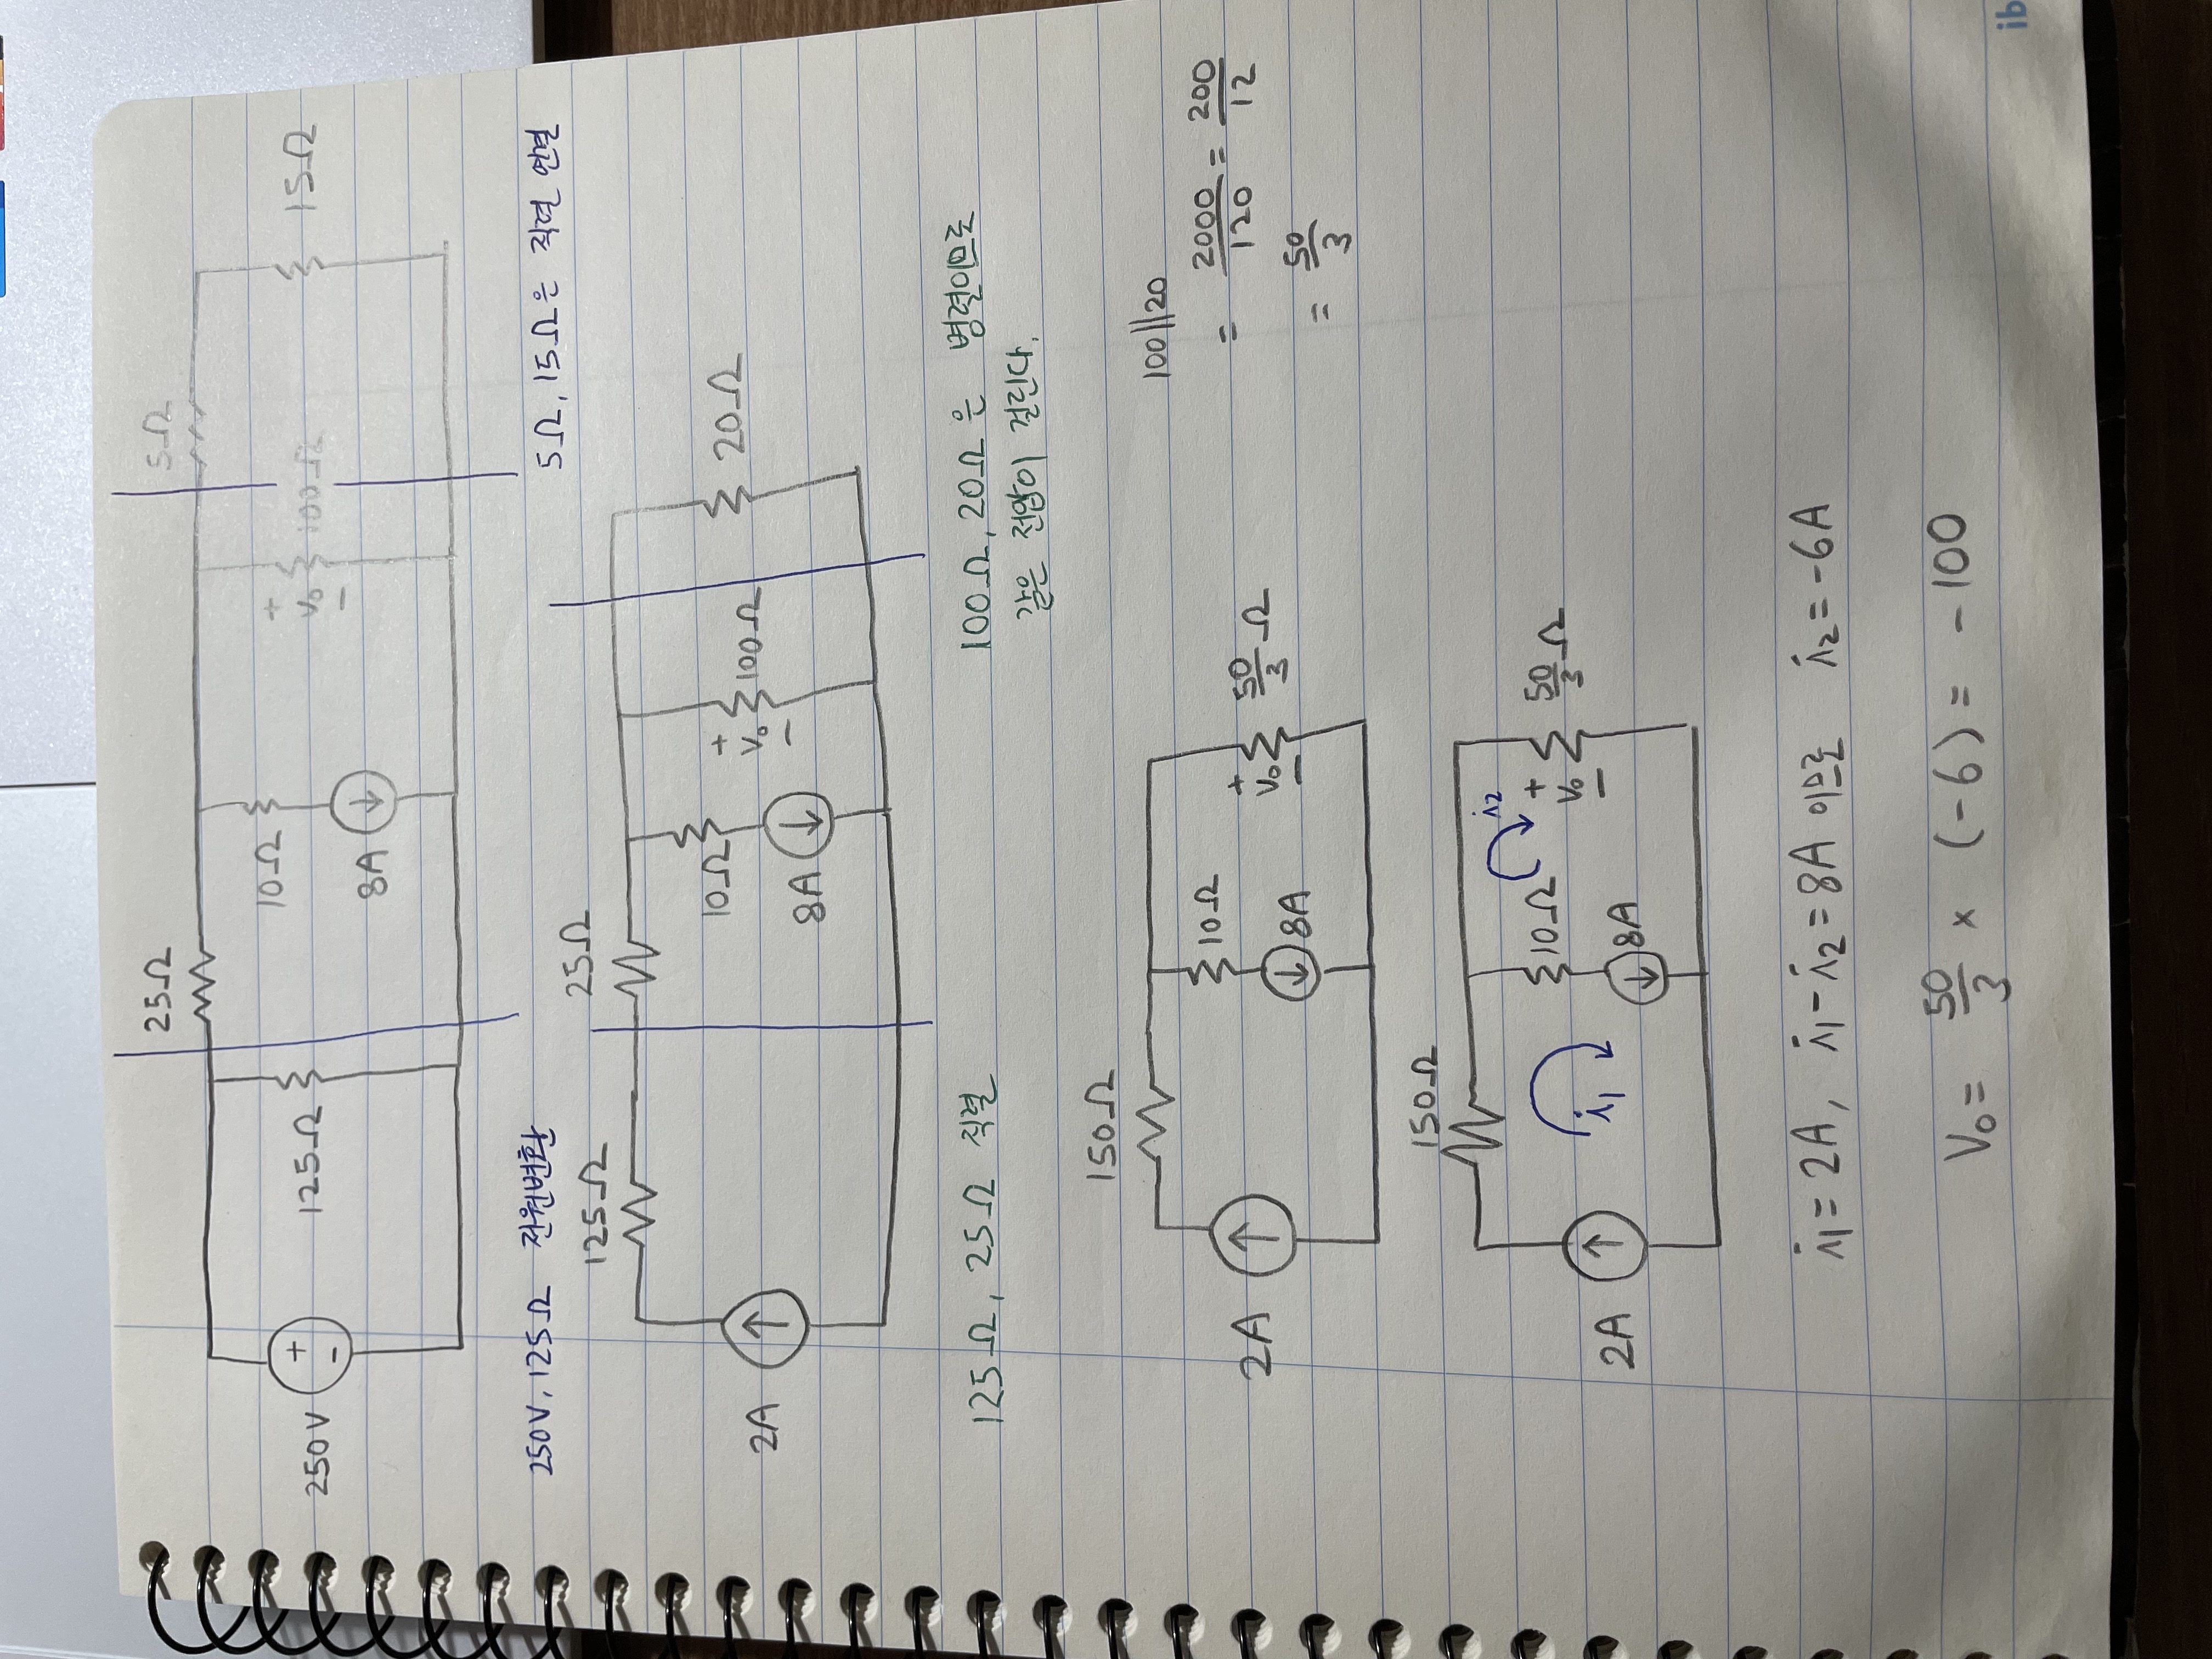 25Ω 5Ω
250V + - 125Ω 10Ω 8A + V₀ - 100Ω 15Ω
250V, 125Ω 전원변환 5Ω, 15Ω은 직렬 연결
125Ω 25Ω
2A 10Ω 8A + V₀ - 100Ω 20Ω
125Ω, 25Ω 직렬 100Ω, 20Ω은 병렬이므로
같은 전압이 걸린다.
150Ω 100||20
2A 10Ω 8A + V₀ - 50/3 Ω = 2000/120 = 200/12
= 50/3
150Ω
2A i₁ 10Ω 8A i₂ + V₀ - 50/3 Ω
i₁ = 2A, i₁ - i₂ = 8A 이므로 i₂ = -6A
V₀ = 50/3 × (-6) = -100
ib